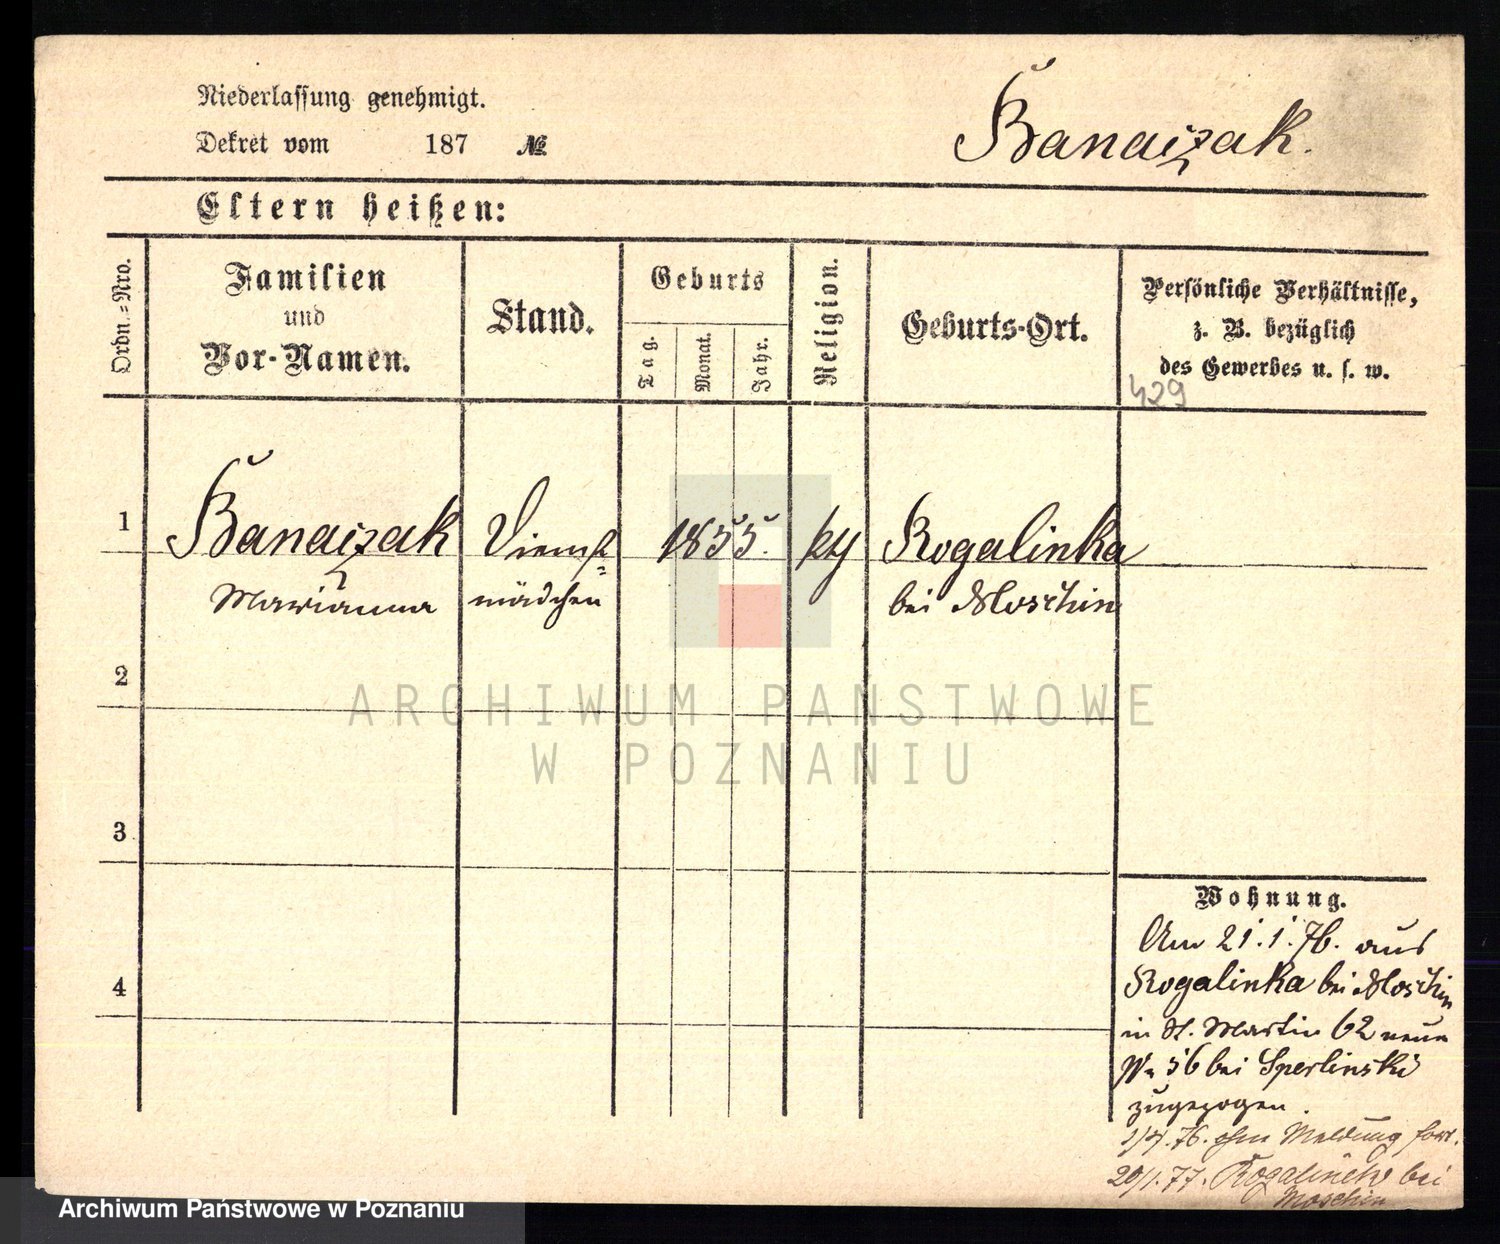 Niederlassung genehmigt.
Dekret vom 187 №
Banaszak.
Eltern heißen:
Ordn.-Nro.
Familien
und
Vor-Namen.
Stand.
Geburts
Tag.
Monat.
Jahr.
Religion.
Geburts-Ort.
Persönliche Verhältnisse,
z. B. bezüglich
des Gewerbes u. s. w.
429
1
Banaszak
Marianna
Dienst=
mädchen
1855.
Rogalinka
bei Moschin
2
3
4
Wohnung.
Am 21.1.76. aus
Rogalinka bei Moschin
in St. Martin 62 neue
No 56 bei Sperlinski
zugezogen.
ohne Meldung fort.
20/1.77. bei
Moschin
ARCHIWUM PAŃSTWOWE
W POZNANIU
Archiwum Państwowe w Poznaniu